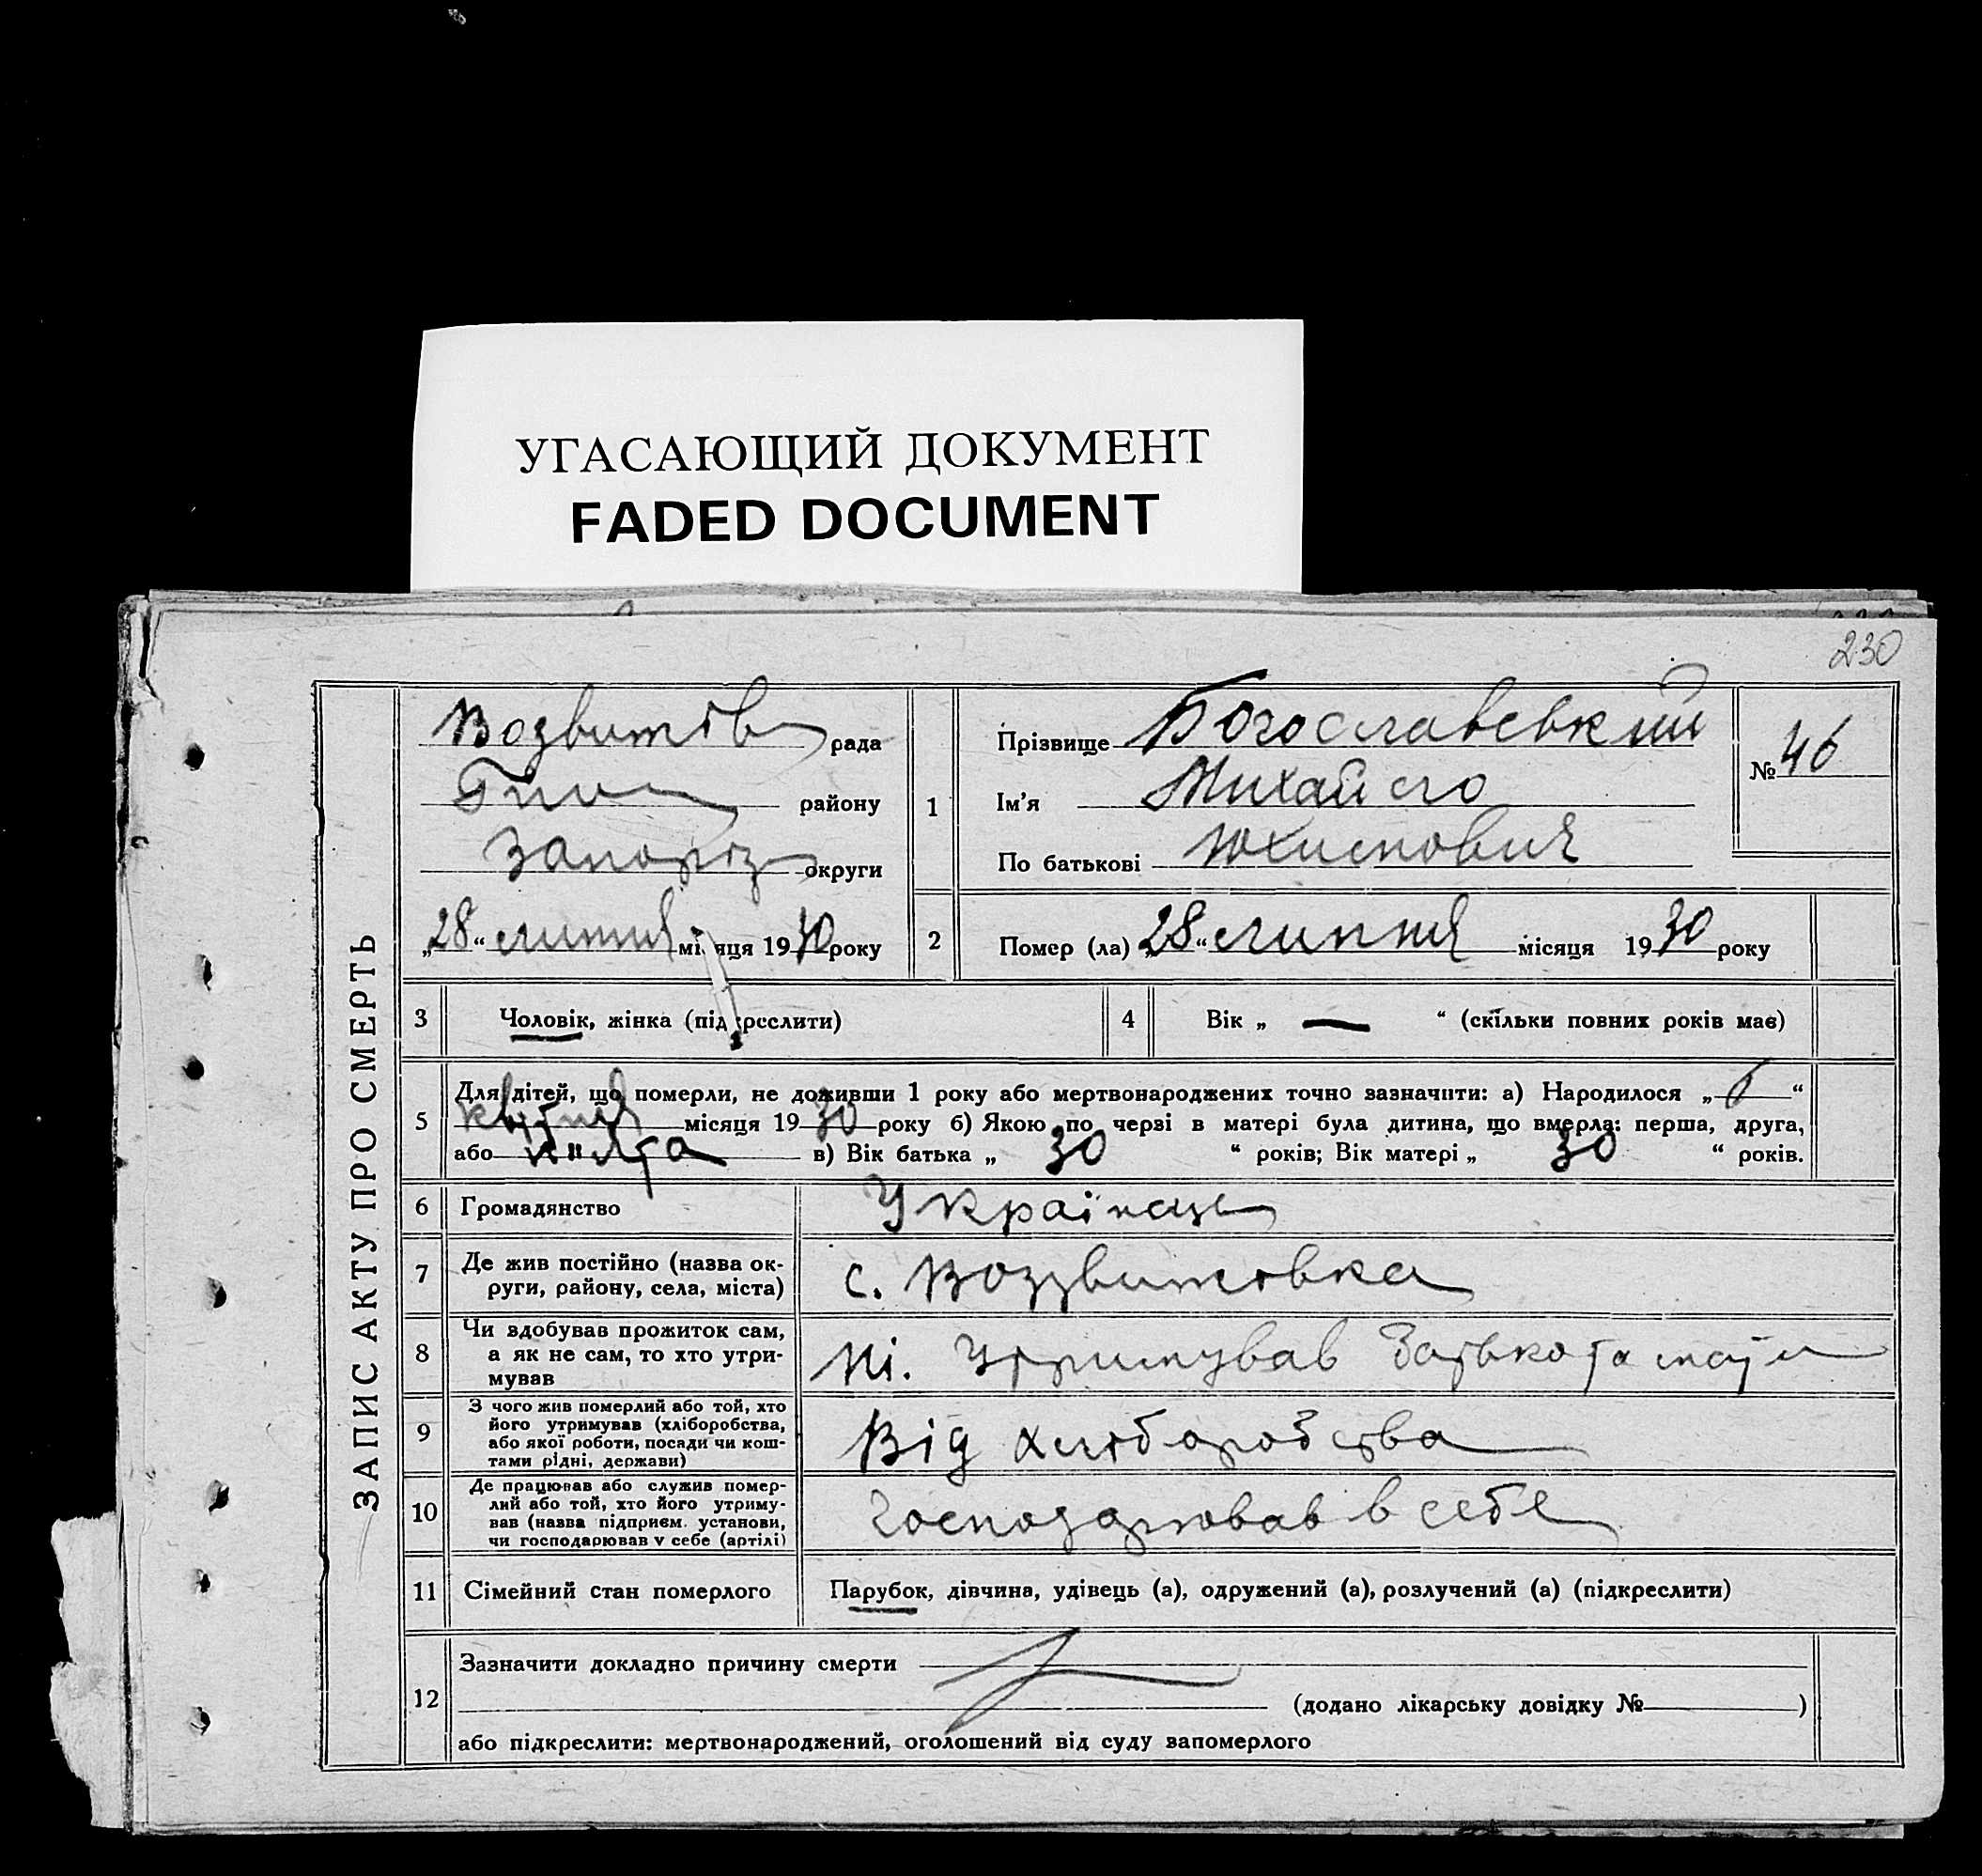 УГАСАЮЩИЙ ДОКУМЕНТ
FADED DOCUMENT
230
ЗАПИС АКТУ ПРО СМЕРТЬ
Воздвижів рада
району
Запоріз округи
„28“ липня місяця 1930 року
1
Прізвище Богославський
Ім'я Михайло
По батькові Юхимович
№ 46
2
Помер (ла) „28“ липня місяця 1930 року
3
Чоловік, жінка (підкреслити)
4
Вік „ — “ (скільки повних років має)
5
Для дітей, що померли, не доживши 1 року або мертвонароджених точно зазначити: а) Народилося „6“
квітня місяця 1930 року б) Якою по черзі в матері була дитина, що вмерла: перша, друга,
або п'ята в) Вік батька „ 30 “ років; Вік матері „ 30 “ років.
6
Громадянство
Українець
7
Де жив постійно (назва ок-
руги, району, села, міста)
с. Воздвижівка
8
Чи здобував прожиток сам,
а як не сам, то хто утри-
мував
Ні. Утримував батько та мати
9
З чого жив померлий або той, хто
його утримував (хліборобства,
або якої роботи, посади чи кош-
тами рідні, держави)
Від хліборобства
10
Де працював або служив помер-
лий або той, хто його утриму-
вав (назва підприєм. установи,
чи господарював у себе (артілі)
Господарював в себе
11
Сімейний стан померлого
Парубок, дівчина, удівець (а), одружений (а), розлучений (а) (підкреслити)
12
Зазначити докладно причину смерти
(додано лікарську довідку № )
або підкреслити: мертвонароджений, оголошений від суду запомерлого